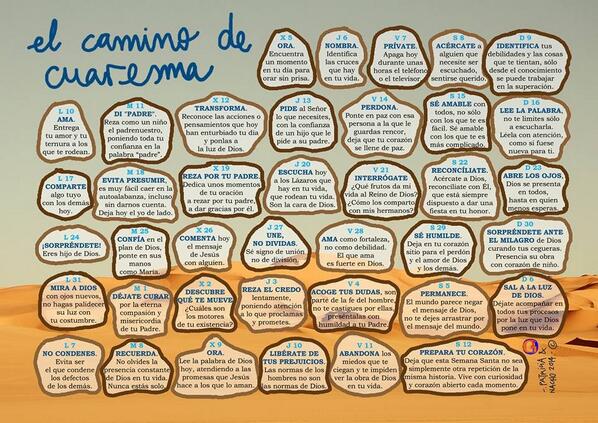 el camino de
cuaresma
X 5
ORA.
Encuentra
un momento
en tu día
para orar
sin prisa.
J 6
NOMBRA.
Identifica
las cruces
que hay
en tu vida.
V 7
PRÍVATE.
Apaga hoy
durante unas
horas
el teléfono o
el televisor
S 8
ACÉRCATE a
alguien que
necesite ser
escuchado,
sentirse querido.
D 9
IDENTIFICA tus
debilidades y las cosas
en que te tientan, sólo
desde el conocimiento
se puede trabajar
en la superación.
L 10
AMA.
Entrega
tu amor y tu
ternura a los
que te rodean.
M 11
DI "PADRE".
Reza como un niño
el padrenuestro,
poniendo toda tu
confianza en la
palabra "padre".
X 12
TRANSFORMA.
Reconoce las acciones o
pensamientos que hoy
han enturbiado tu día
y ponlas a
la luz de Dios.
J 13
PIDE al Señor
lo que necesites,
con la confianza
de un hijo que le
pide a su padre.
V 14
PERDONA.
Ponte en paz con esa
persona a la que le
guardas rencor,
deja que tu corazón
se llene de paz.
S 15
SÉ AMABLE con
todos, no sólo
con los que te es
fácil. Sé amable
con los que te es
más complicado.
D 16
LEE LA PALABRA,
no te limites sólo
a escucharla.
Léela con atención,
como si fuese
nueva para ti.
L 17
COMPARTE
algo tuyo
con los demás
hoy.
M 18
EVITA PRESUMIR,
es muy fácil caer en la
autoalabanza, incluso
sin darnos cuenta.
Deja hoy el yo de lado.
X 19
REZA POR TU PADRE.
Dedica unos momentos
de tu oración
a rezar por tu padre,
dar gracias por él.
J 20
ESCUCHA hoy
a los Lázaros que
hay en tu vida,
que rodean tu casa.
Son la cara de Dios.
V 21
INTERRÓGATE
¿Qué frutos da mi
vida al Reino de Dios?
¿Cómo los comparto
con mis hermanos?
S 22
RECONCÍLIATE.
Acércate a Dios y
reconcíliate con Él,
que está siempre
dispuesto a dar una
fiesta en tu honor.
D 23
ABRE LOS OJOS,
Dios se presenta
en todos,
hasta en quien
menos esperas.
L 24
¡SORPRÉNDETE!
Eres hijo de Dios.
M 25
CONFÍA en el
plan de Dios,
ponte en sus
manos
como María.
X 26
COMENTA hoy
el mensaje
de Jesús
con alguien.
J 27
UNE,
NO DIVIDAS.
Sé signo de unión
no de división.
V 28
AMA como fortaleza,
no como debilidad.
El que ama
es fuerte en Dios.
S 29
SÉ HUMILDE.
Deja en tu corazón
sitio para el perdón
y el amor de Dios
y los demás.
D 30
SORPRÉNDETE ANTE
EL MILAGRO de Dios
curando tus cegueras.
Presenta su obra
con orgullo a los demás.
L 31
MIRA A DIOS
con ojos nuevos,
no hagas palidecer
su luz con
tu costumbre.
M 1
DÉJATE CURAR
por la eterna
compasión y
misericordia
de tu Padre.
X 2
DESCUBRE
QUÉ TE MUEVE.
¿Cuáles son
los motores
de tu existencia?
J 3
REZA EL CREDO
lentamente,
siendo atención
a lo que proclamas
y prometes.
V 4
ACOGE TUS DUDAS, son
parte de la fe del hombre,
no te castigues por ellas
preséntalas con
humildad a tu Padre.
S 5
PERMANECE.
El mundo parece negar
el mensaje de Dios,
no te dejes arrastrar por
el mensaje del mundo.
D 6
SAL A LA LUZ
DE DIOS.
Déjate acompañar
en todos tus procesos
por la luz que Dios
pone en tu vida.
L 7
NO CONDENES.
Evita ser
el que condene
los defectos de
los demás.
M 8
RECUERDA.
No olvides la
presencia constante
de Dios en tu vida.
Nunca estás solo.
X 9
ORA.
Lee la palabra de Dios
hoy, atendiendo a las
promesas que Jesús
hace a los que lo aman.
J 10
LIBÉRATE DE
TUS PREJUICIOS.
Las normas de los
hombres no son
las normas de Dios.
V 11
ABANDONA los
miedos que te
ciegan y te impiden
ver la obra de Dios
en tu vida.
S 12
PREPARA TU CORAZÓN.
Deja que esta Semana Santa no sea
simplemente otra repetición de la
misma historia. Vive con curiosidad
y corazón abierto cada momento.
PATXIÑA &
NACHO 2014 ©